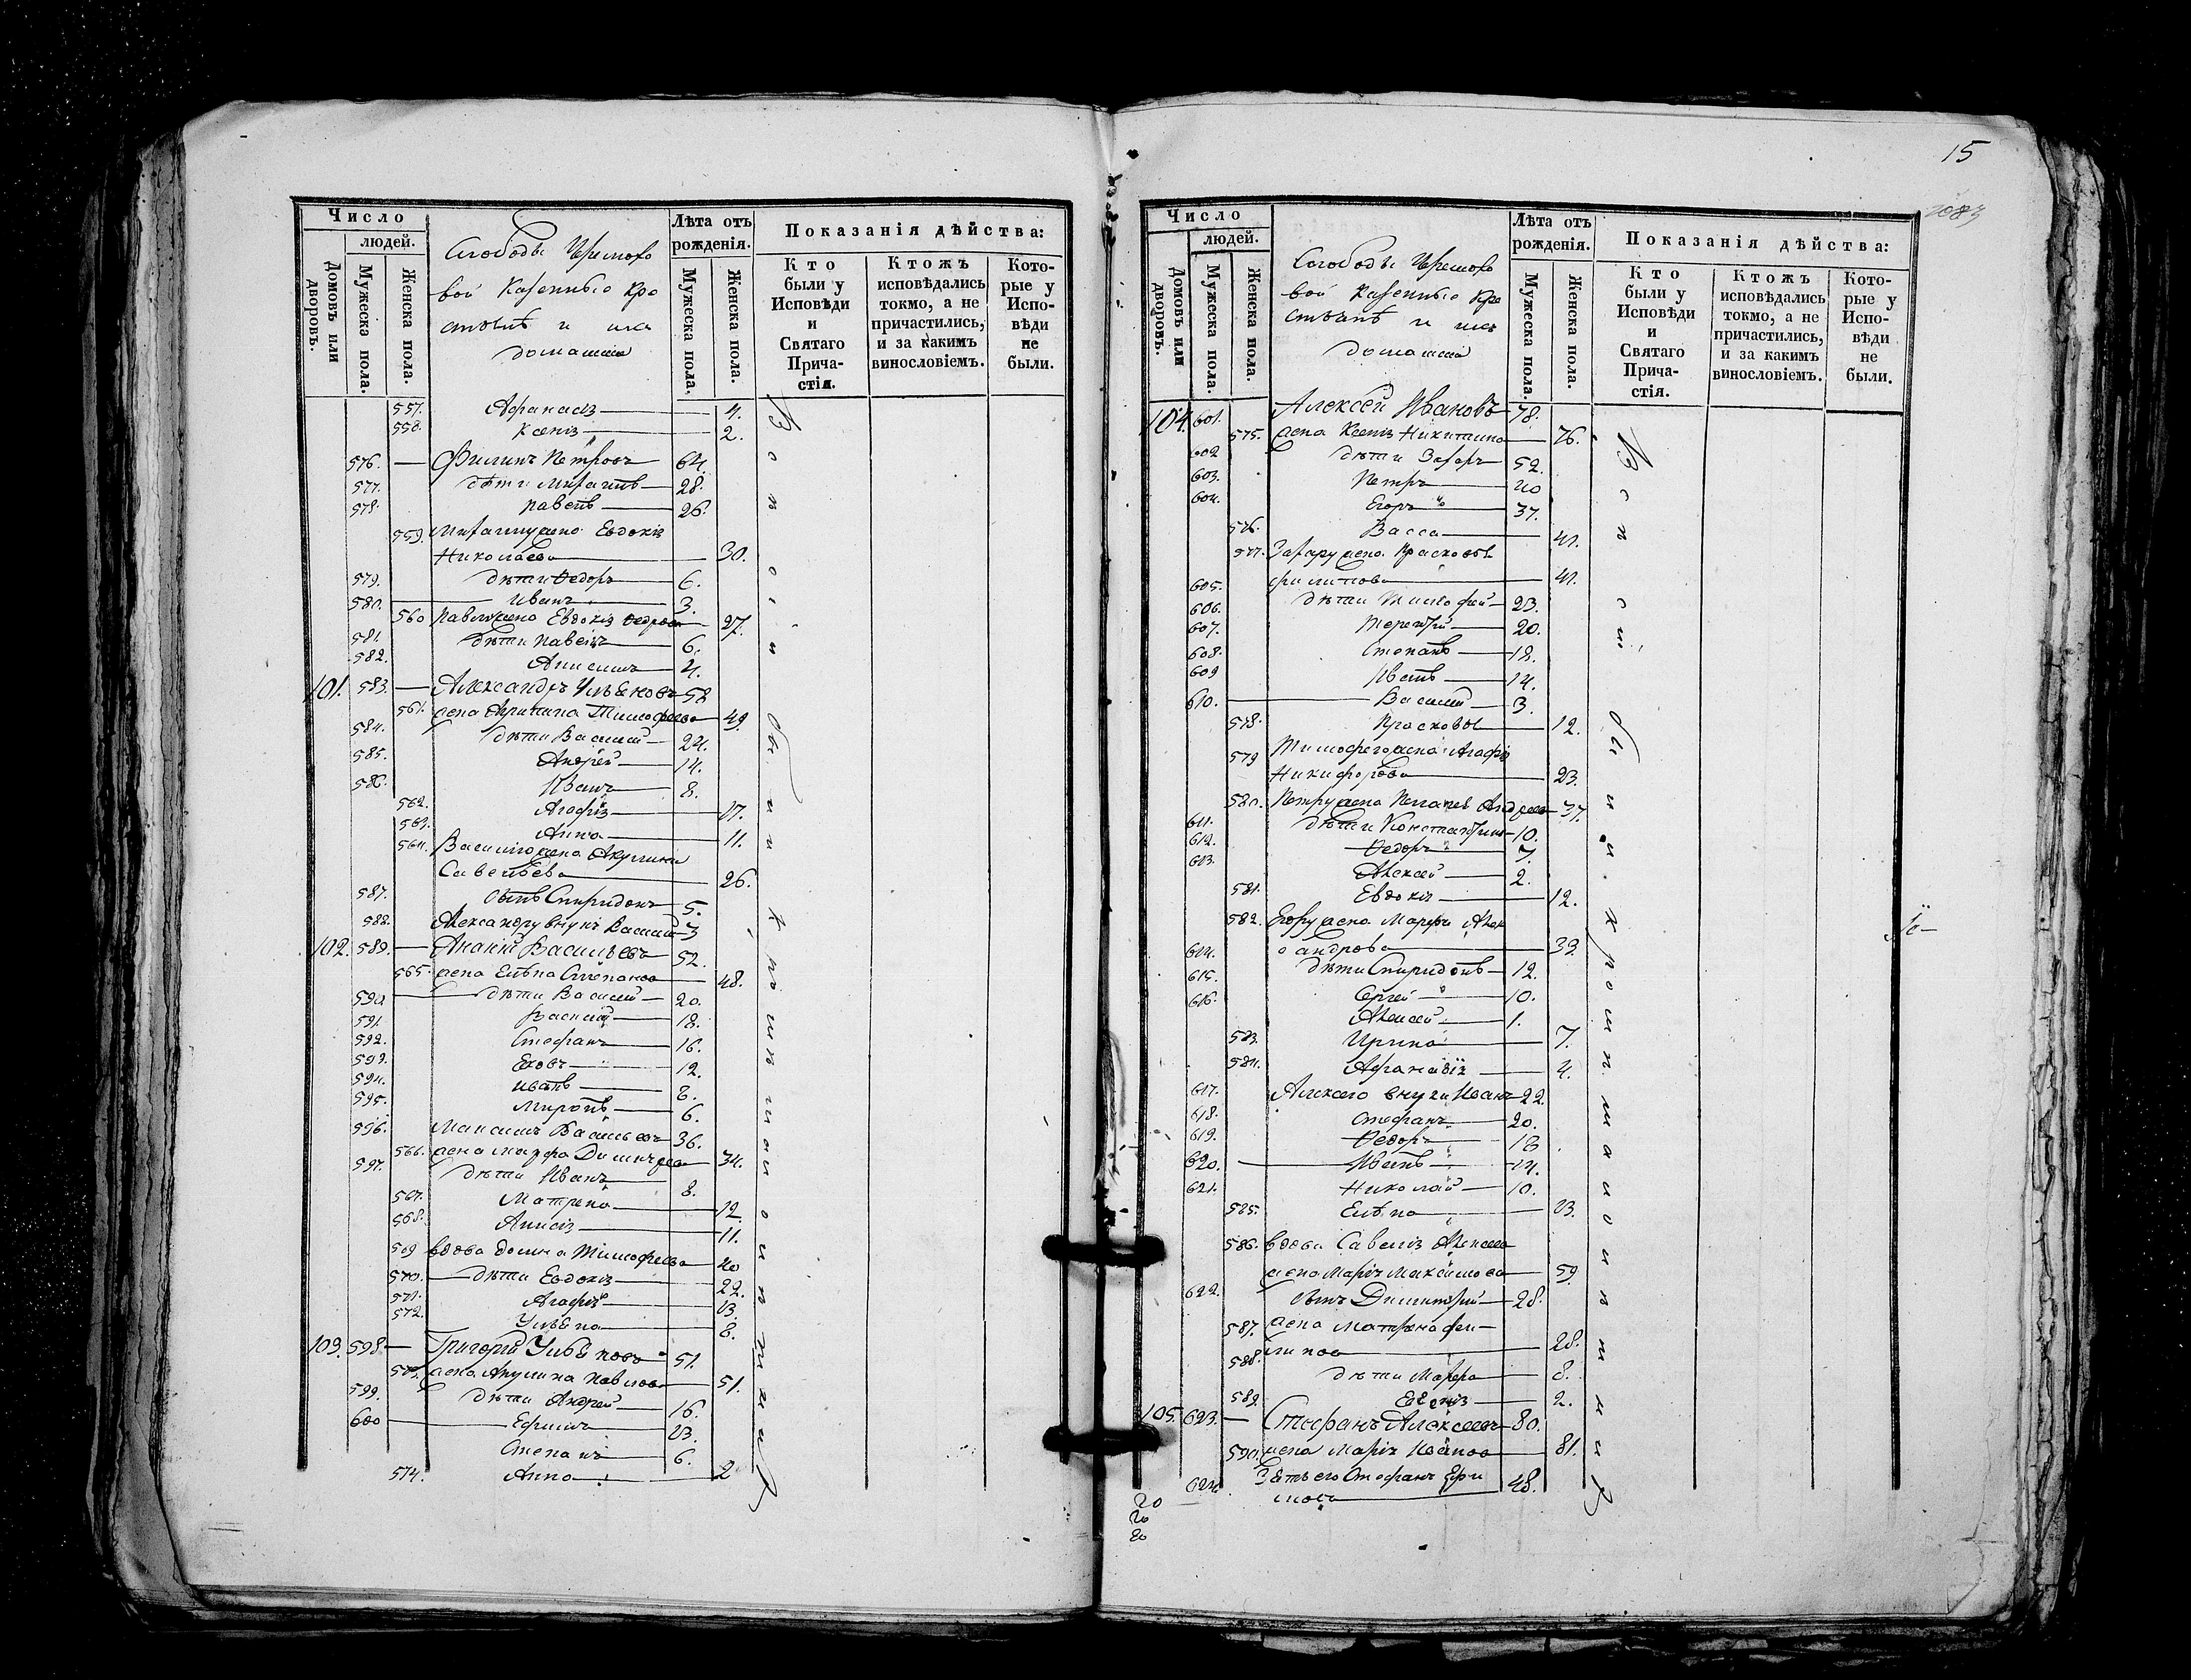 15
Число
людей.
Домовъ или дворовъ.
Мужеска пола.
Женска пола.
Лѣта отъ рожденія.
Мужеска пола.
Женска пола.
Показанія дѣйства:
Кто были у Исповѣди и Святаго Причастія.
Ктожъ исповѣдались токмо, а не причастились, и за какимъ винословіемъ.
Которые у Исповѣди не были.
Слободы
вой Казенныо Кре
стьянѣ и ихъ
домашніи
557. Афанасія 4.
558. Ксенія 2.
576. Филипъ Петровъ 64.
577. дѣти 28.
578. Павелъ 26.
559. жена Евдокія
Николаева 30.
579. дѣти Ѳедоръ 6.
580. Иванъ 3.
560 Павлу жена Евдокія Ѳедрова 27.
581. дѣти Павелъ 6.
582. Анисимъ 4.
101. 583. Александръ Ульяновъ 52
561. жена Акрипина Тимофеева 49.
584. дѣти Василий 24.
585. Андрей 14.
586. Иванъ 8.
562. Агафія 17.
563. Анна 11.
564. Василию жена Акулина
Савельева 26.
587. сынъ Спиридонъ 5.
588. Александру внукъ Василий 3
102. 589. Ананій Васильевъ 52.
565. жена Елѣна Степанова 48.
590 дѣти Василий 20.
591. Василий 18.
592. Стефанъ 16.
593. Яковъ 12.
594. Иванъ 8.
595. Миронъ 6.
596. Максимъ Васильевъ 36.
566. жена Марфа 34.
597. дѣти Иванъ 8.
567. Матрена 12.
568. Анисія 11.
569 вдова Домна Тимофеева 40
570. дѣти Евдокія 22.
571. Агафія 13.
572. Ульяна 8.
103. 598. Григорій Ульяновъ 51.
573. жена Акулина Павлова 51.
599. дѣти Андрей 16.
600 Ефимъ 13.
Степанъ 6.
574. Анна 2
Число
людей.
Домовъ или дворовъ.
Мужеска пола.
Женска пола.
Лѣта отъ рожденія.
Мужеска пола.
Женска пола.
Показанія дѣйства:
Кто были у Исповѣди и Святаго Причастія.
Ктожъ исповѣдались токмо, а не причастились, и за какимъ винословіемъ.
Которые у Исповѣди не были.
Слободы
вой Казенныо Кре
стьянѣ и ихъ
домашніи
104. 601. Алексей Ивановъ 78.
575. жена Ксенія Никитина 76.
602 дѣти Захаръ 52.
603. Петръ 40
604. Егоръ 37.
576. Васса 41.
577. Захару жена Прасковья
Филипова 41.
605. дѣти Тимофей 23.
606. Терентий 20.
607. Степанъ 18.
608. Иванъ 14.
609
610. Василий 3.
578. Прасковья 12.
579 Тимофею жена Агафія
Никифорова 23.
580. Петру жена Пелагея Андреева 37.
611. дѣти Константинъ 10.
612. Ѳедоръ 7.
613. Алексей 2.
581. Евдокія 12.
582. Егору жена Марфа Алек
сандрова 39.
614. дѣти Спиридонъ 12.
615. Сергей 10.
616. Алексей 1.
583. Ирина 7.
584. Афанасія 4.
617. Алексею внуки Иванъ 22.
618. Стефанъ 20.
619. Ѳедоръ 18.
620. Иванъ 14.
621. Николай 10.
585. Елѣна 13.
586. вдова Савелія Алексеева
жена Марія Максимова 59.
622. сынъ Димитрий 28.
587. жена Матрена Фи
липова 28.
588. дѣти Марфа 8.
589. Евгенія 2.
105. 623. Стефанъ Алексеевъ 80.
590. жена Марія Иванова 81.
624. Зять его Стефанъ Ефи
мовъ 48.
20
20
20